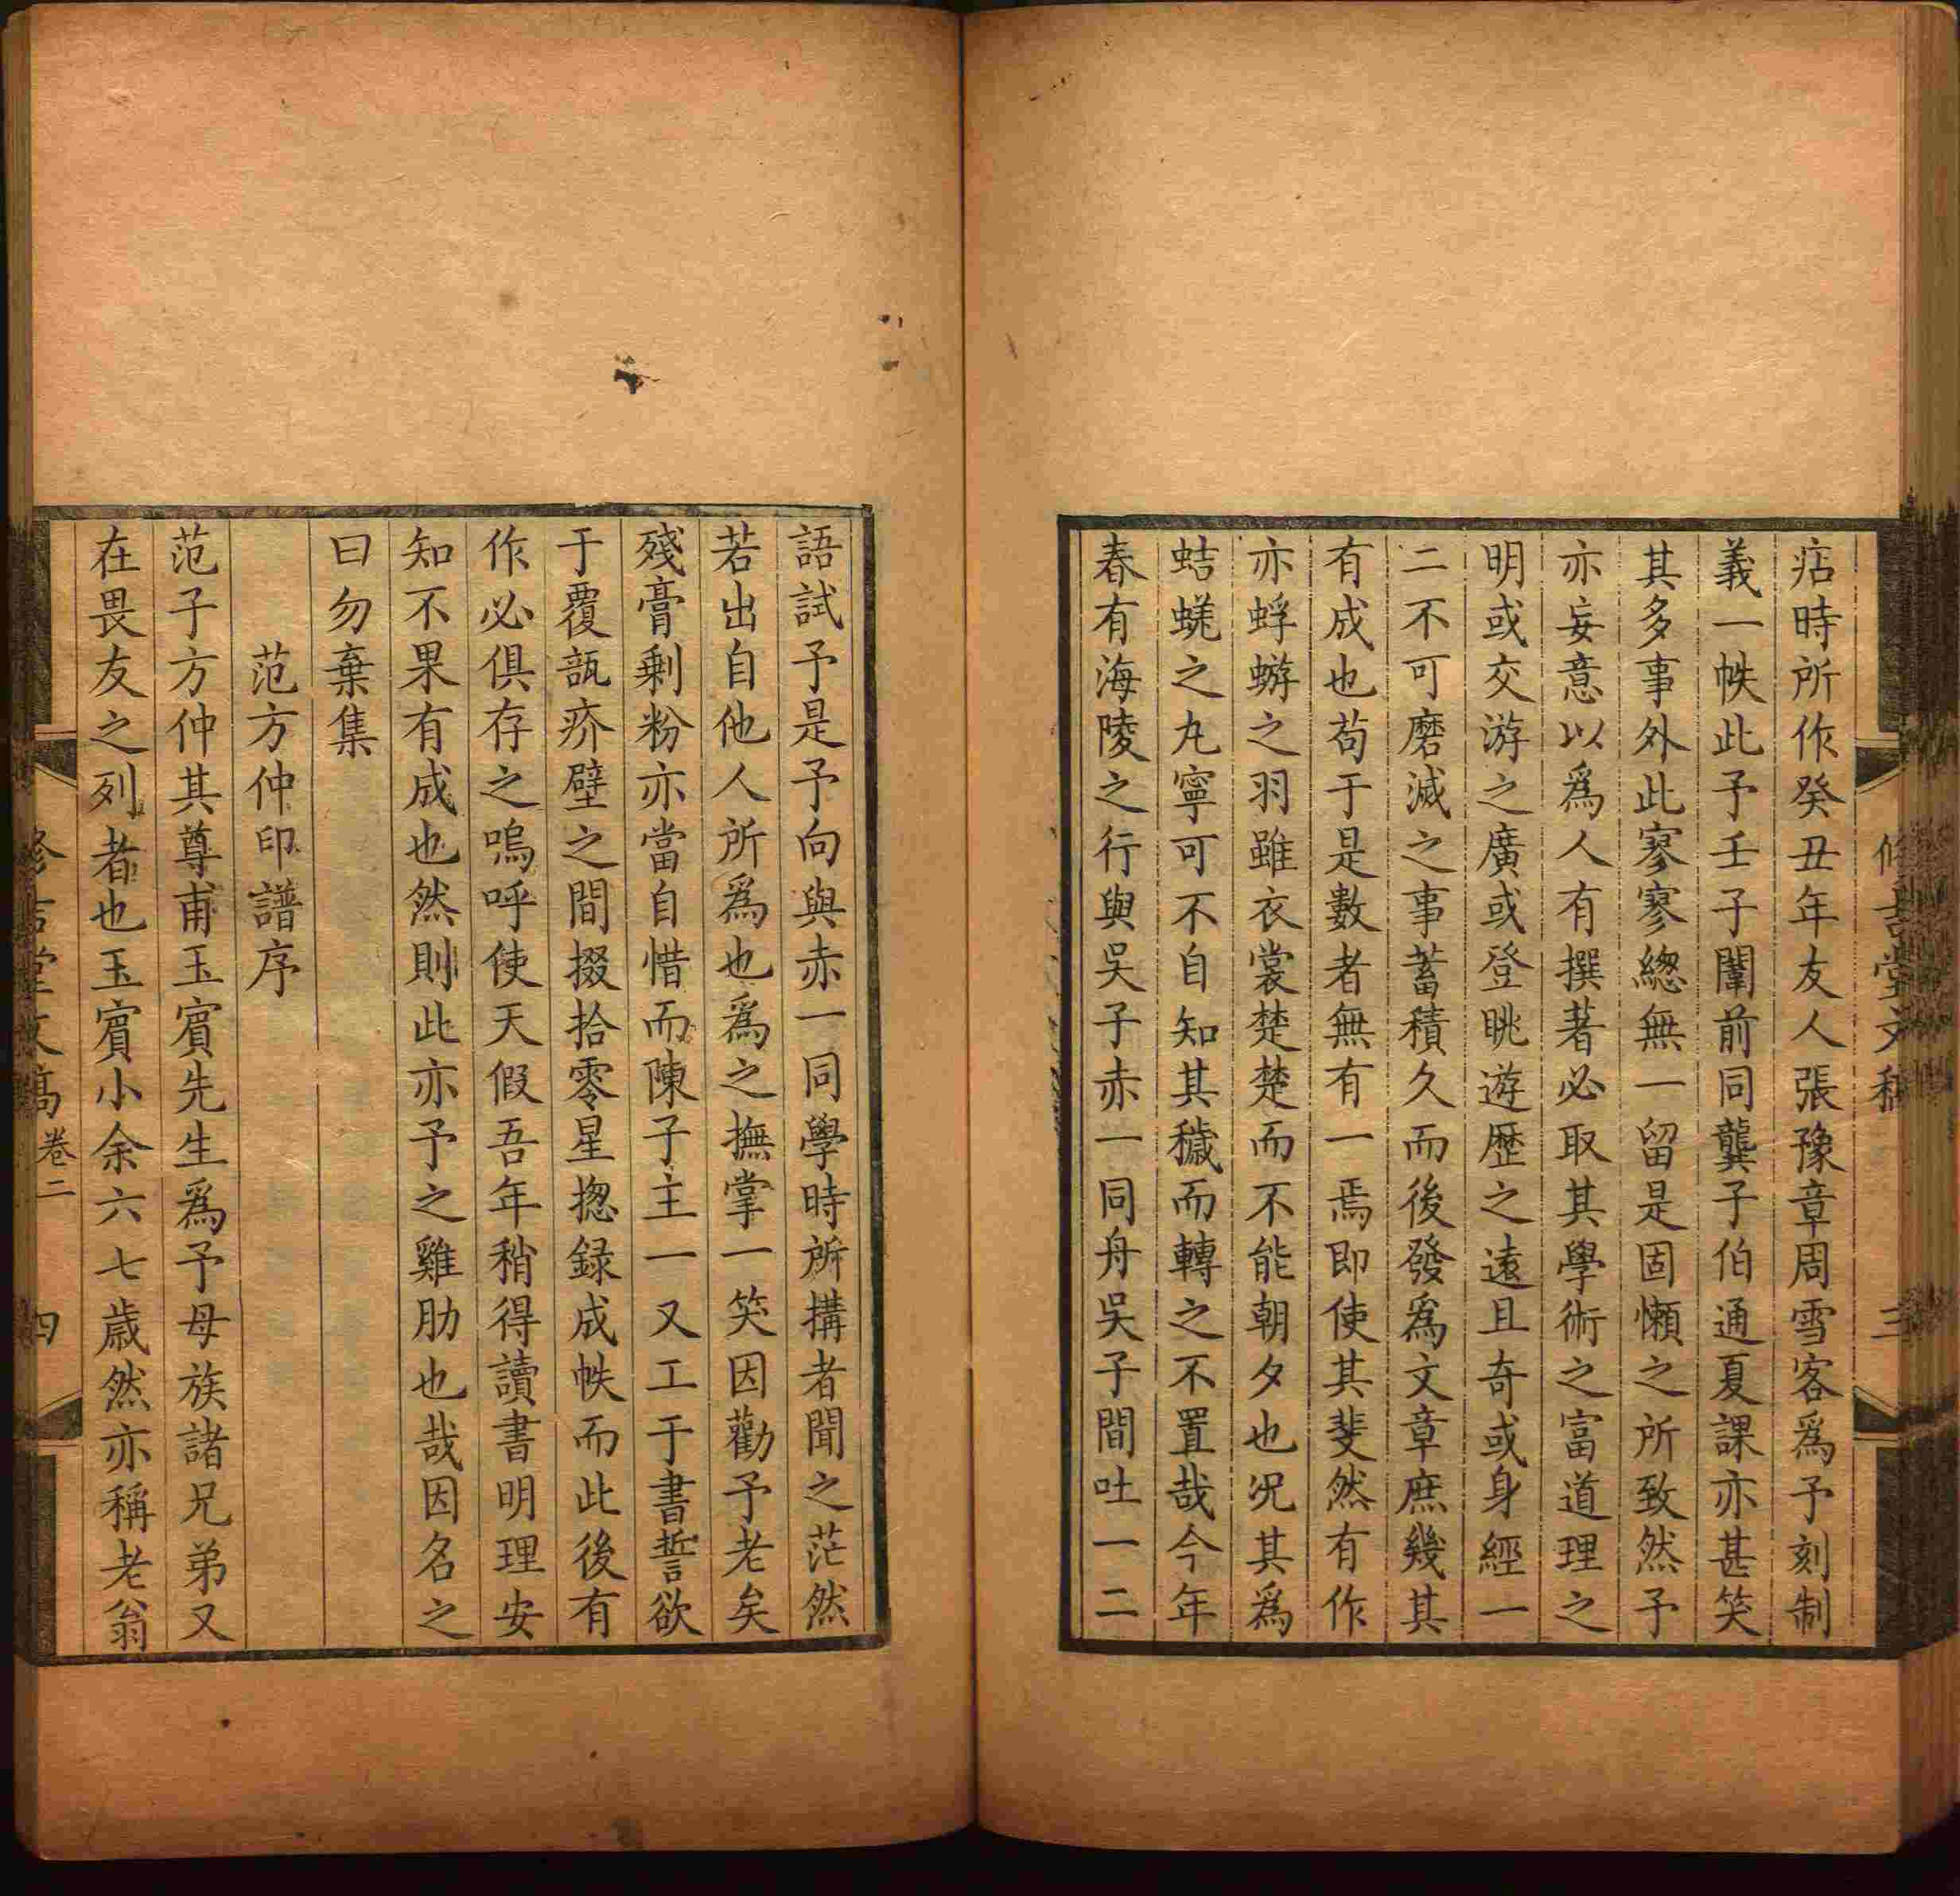 痁時所作癸丑年友人張豫章周雪客爲予刻制
義一帙此予壬子闈前同龔子伯通夏課亦甚笑
其多事外此寥寥緫無一留是固懶之所致然予
亦妄意以爲人有撰著必取其學術之富道理之
明或交游之廣或登眺遊歷之遠且奇或身經一
二不可磨滅之事蓄積久而後發爲文章庶幾其
有成也苟于是數者無有一焉即使其斐然有作
亦蜉蝣之羽雖衣裳楚楚而不能朝夕也况其爲
蛣蜣之丸寧可不自知其穢而轉之不置哉今年
春有海陵之行與吳子赤一同舟吳子間吐一二
語試予是予向與赤一同學時所搆者聞之茫然
若出自他人所爲也爲之撫掌一笑因勸予老矣
殘膏剩粉亦當自惜而陳子主一又工于書誓欲
于覆瓿疥壁之間掇拾零星揔録成帙而此後有
作必俱存之嗚呼使天假吾年稍得讀書明理安
知不果有成也然則此亦予之雞肋也哉因名之
曰勿棄集
范方仲印譜序
范子方仲其尊甫玉賔先生爲予母族諸兄弟又
在畏友之列者也玉賔小余六七歲然亦稱老翁
堂文稿卷二
四